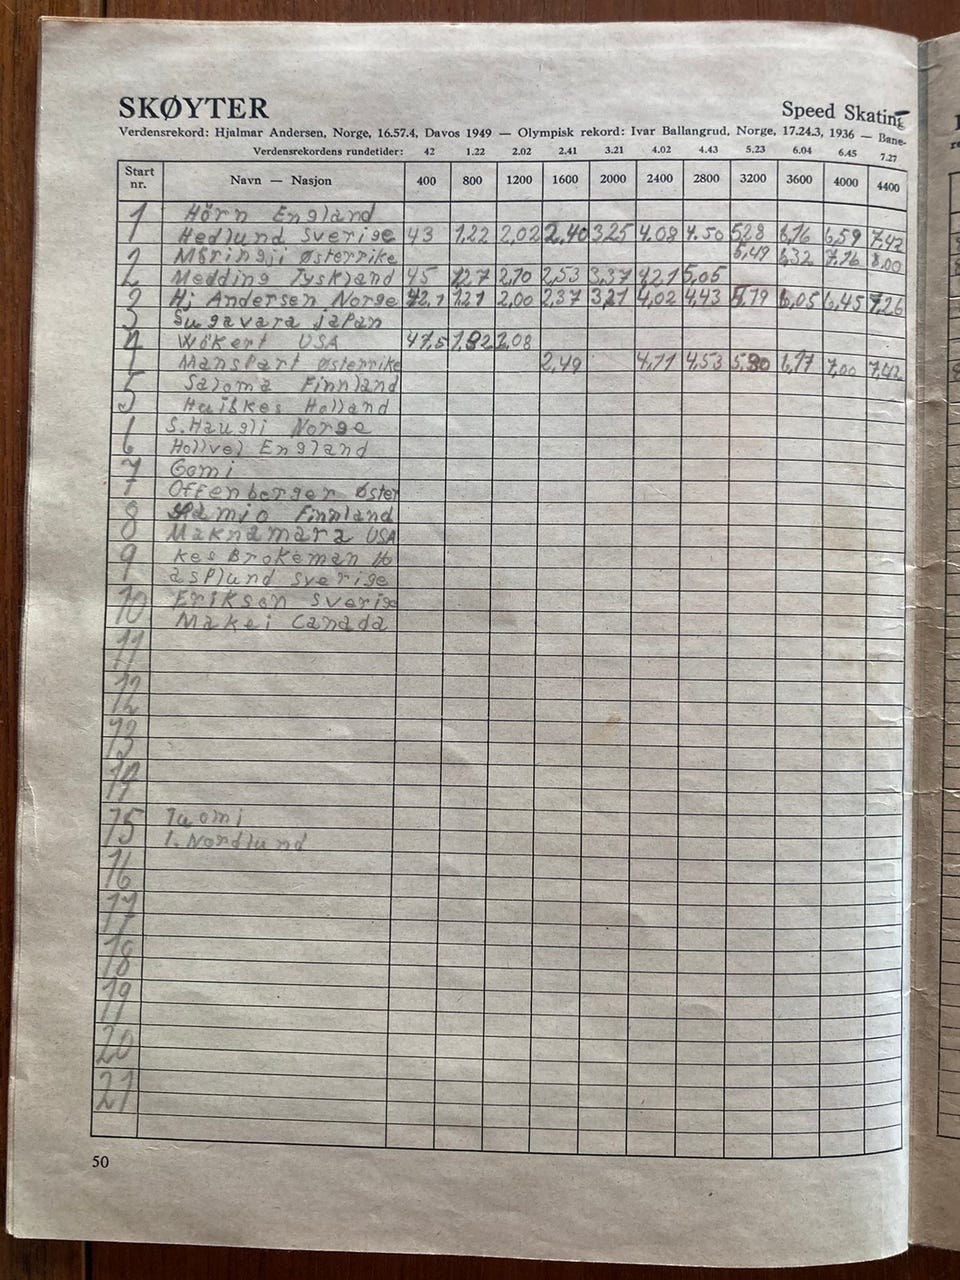 SKØYTER
Speed Skating
Verdensrekord: Hjalmar Andersen, Norge, 16.57.4, Davos 1949 — Olympisk rekord: Ivar Ballangrud, Norge, 17.24.3, 1936 — Bane-
Verdensrekordens rundetider: 42 1.22 2.02 2.41 3.21 4.02 4.43 5.23 6.04 6.45 7.27
Start nr. Navn — Nasjon 400 800 1200 1600 2000 2400 2800 3200 3600 4000 4400
1 Hörn England
Hedlund Sverige 43 1.22 2,02 2,40 3.25 4.08 4.50 528 6,16 6,59 7,42
2 Möringii Østerrike 5,49 6,32 7,16 8,00
Medding Tyskland 45 127 2,10 2,53 3,37 421 5,05
3 Hj Andersen Norge 42,1 1.21 2,00 2,37 3,21 4,02 4,43 5,19 6,05 6,45 7,26
3 Sugavara japan
4 Wökert USA 47,5 1,32 2,08
Manspart østerrike 2,49 4,11 4,53 5,30 6,17 7,00 7,42
5 Saloma Finnland
5 Huiskes Holland
6 S. Haugli Norge
6 Hollvel England
7 Gomi
7 Offenberger øster
8 Lamio Finnland
8 Maknamara USA
9 kes Brokeman Ho
asplund sverige
10 Erikson sverige
Makei Canada
11
12
13
14
15 Tuomi
I. Nordlund
16
17
18
19
20
21
50